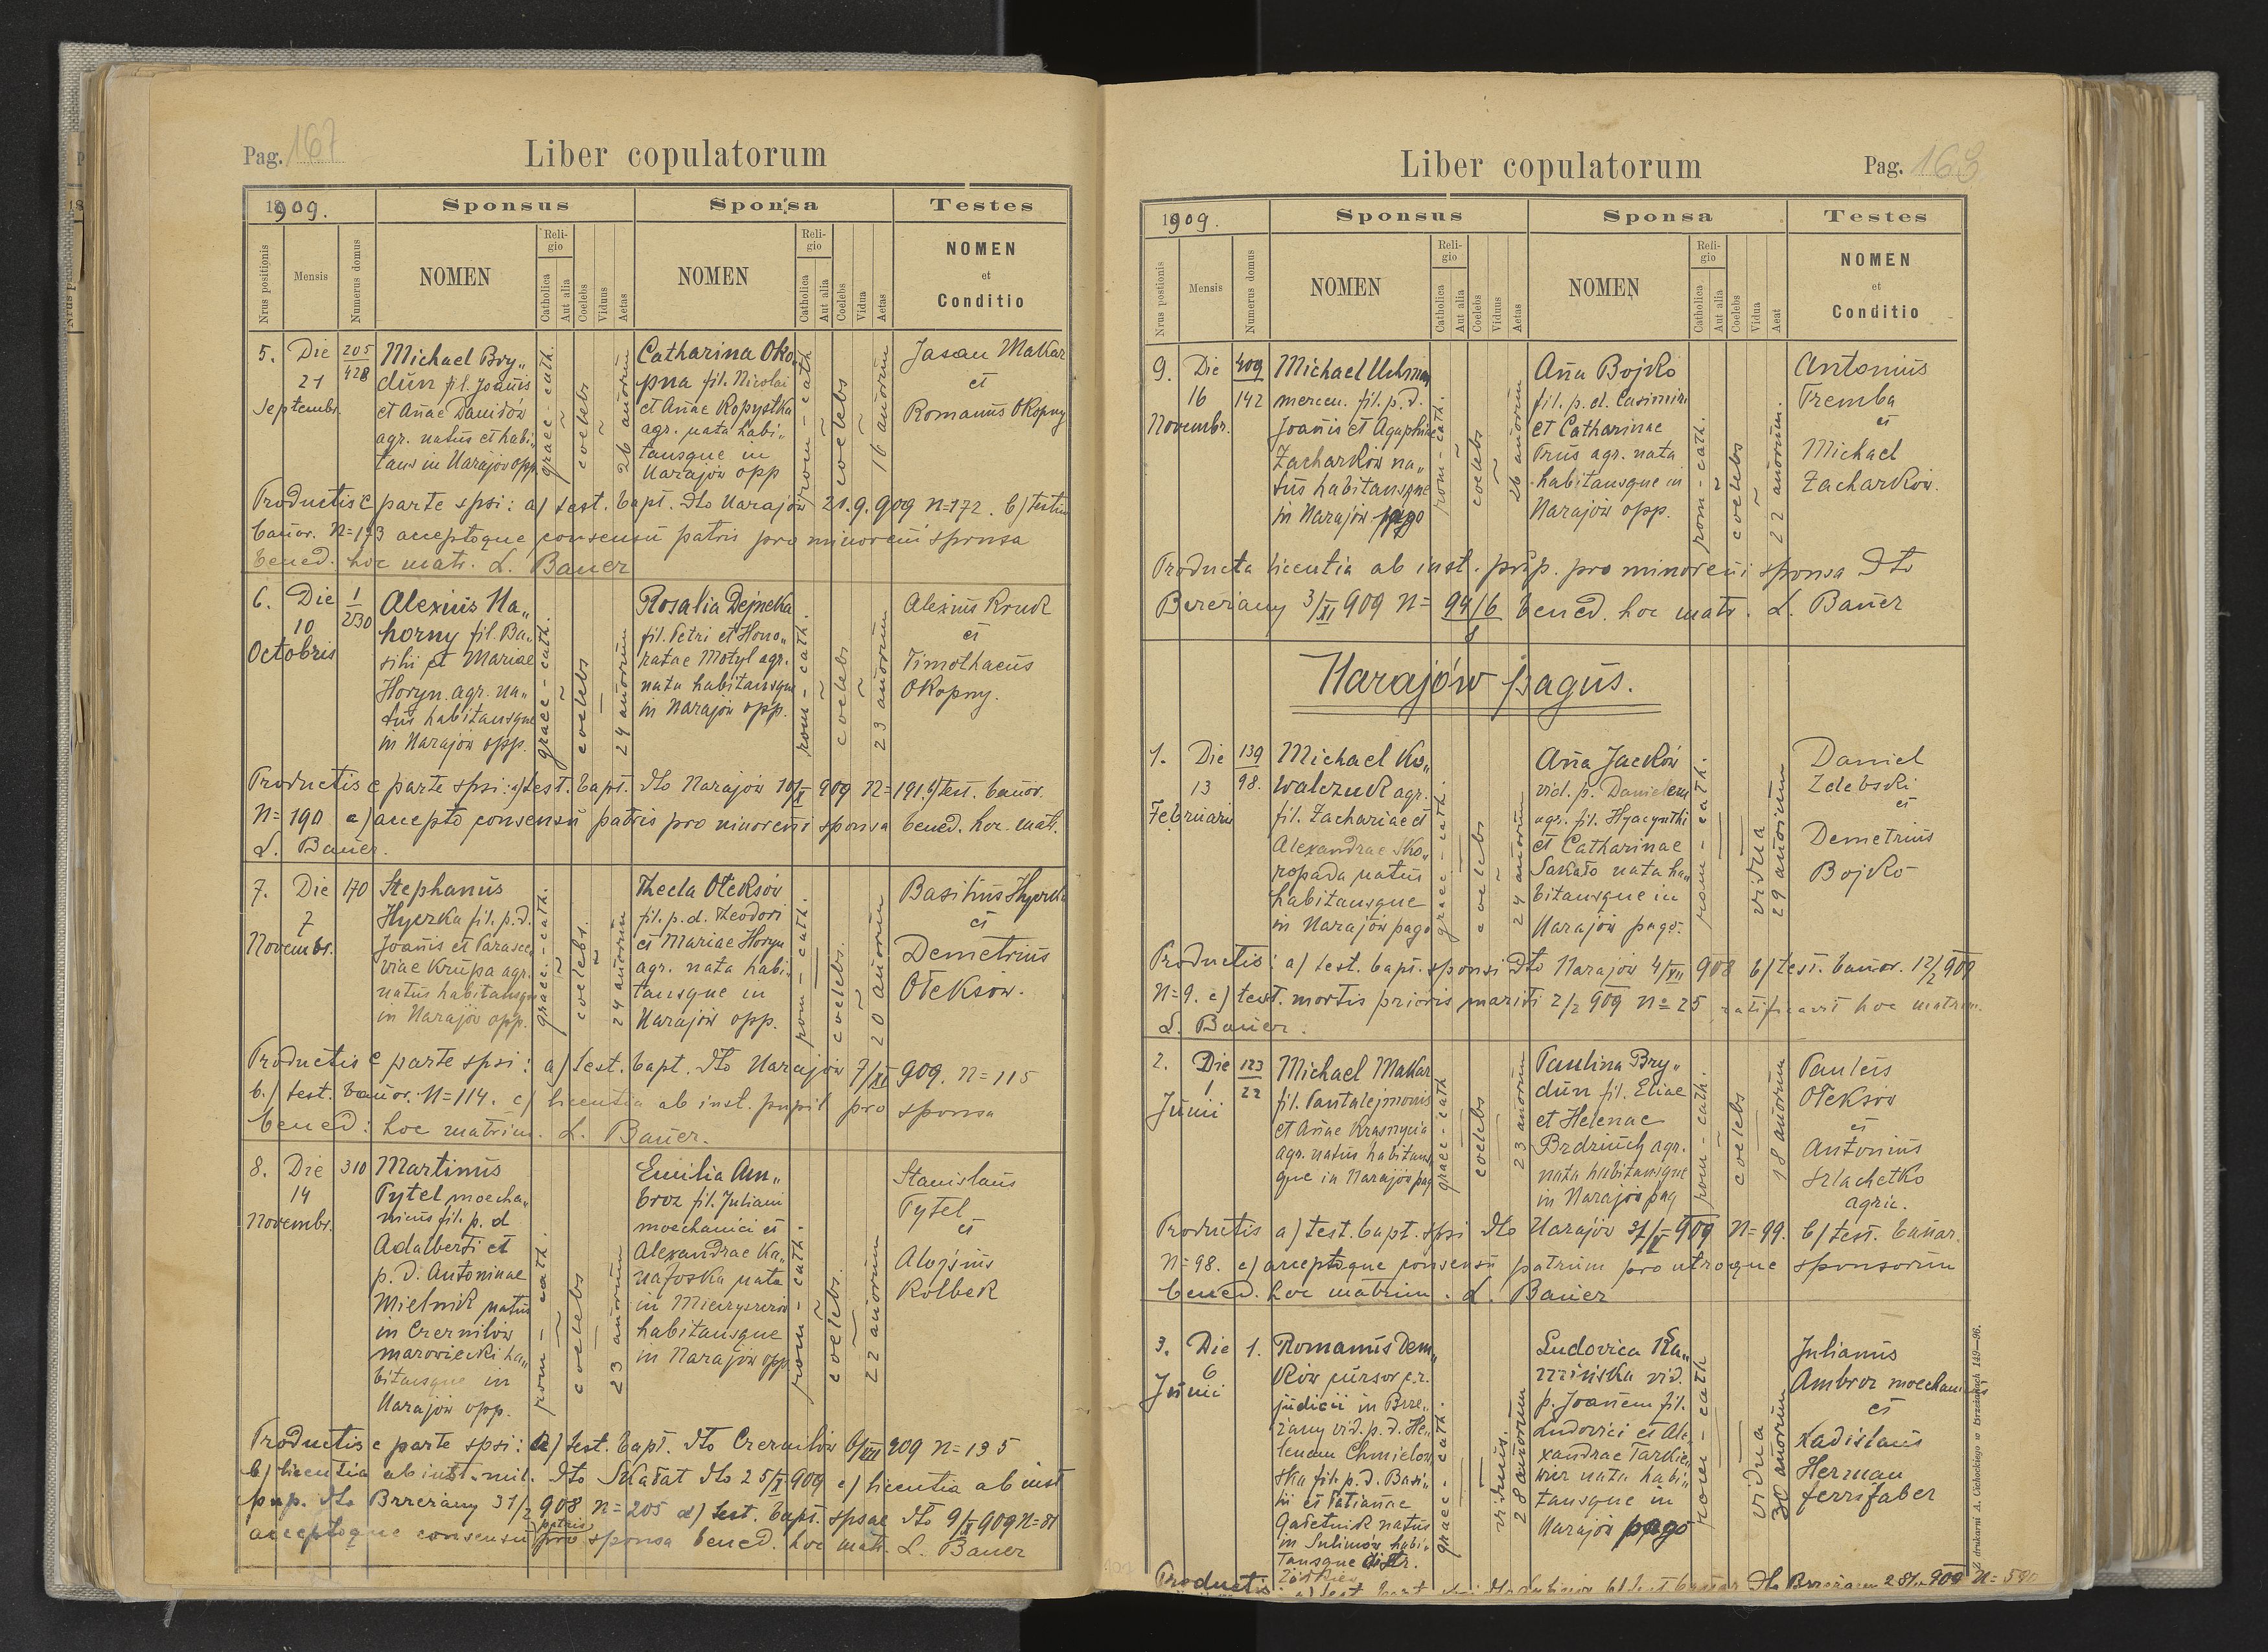 Pag. 167
Liber copulatorum
1909.
Sponsus
Sponsa
Testes
Nrus positionis
Mensis
Numerus domus
NOMEN
Religio
Catholica
Aut alia
Coelebs
Viduus
Aetas
NOMEN
Religio
Catholica
Aut alia
Coelebs
Vidua
Aetas
NOMEN
et
Conditio
5. Die 21 Septembr.
205
428
Michael Bry„
dun fil. Joanis
et Anae Danidów
agr. natus et habi„
tans in Narajów opp.
graec-cath.
coelebs
26 anorum
Catharina Oko„
pna fil. Nicolai
et Anae Kopystka
agr. nata habi„
tansque in
Narajów opp
rom-cath
coelebs
16 anorum
Jasan Makar
et
Romanus Okopny
Productis e parte spsi: a) test. bapt. dto Narajów 21.9.909 N=172. b) testim
banor. N=173 acceptoque consensu patris pro minoreni sponsa
bened. hoc matr. L. Bauer
6. Die 10 Octobris
1
230
Alexius Na„
horny fil. Ba„
silii et Mariae
Horyn agr. na„
tus habitansque
in Narajów opp.
graec-cath.
coelebs
24 anorum
Rosalia Dejneka
fil. Petri et Hono„
ratae Motyl agr.
nata habitansque
in Narajów opp.
rom-cath.
coelebs
23 anorum
Alexius Kruk
et
Timothaeus
Okopny.
Productis e parte spsi: a) test. bapt. dto Narajów 10/X 909 N=191. b) test. banor.
N=190 c) accepto consensu patris pro minoreni sponsa bened. hoc mat.
L. Bauer.
7. Die 7 Novembr.
170
Stephanus
Hyerka fil. p. d.
Joanis et Parasce„
viae Krupa agr.
natus habitansque
in Narajów opp.
graec-cath.
coelebs.
24 anorum
Thecla Oleksów
fil. p. d. Theodori
et Mariae Horyn
agr. nata habi„
tansque in
Narajów opp.
rom-cath.
coelebs.
20 anorum
Basilius Hyerka
et
Demetrius
Oleksów.
Productis e parte spsi: a) test. bapt. dto Narajów 7/XI 909. N=115
b.) test. banor. N=114. c) licentia ab inst. pupil pro sponsa
bened: hoc matrim. L. Bauer.
8. Die 14 Novembr.
310
Martinus
Tytel moecha„
nicus fil. p. d
Adalberti et
p. d. Antoninae
Mielnik natus
in Czernilów
mazowiecki ha„
bitansque in
Narajów opp.
rom-cath.
coelebs
23 anorum
Emilia Am„
broz fil. Juliani
moechanici et
Alexandrae Ka„
nafoska nata
in Mieczyszczów
habitansque
in Narajów opp.
rom-cath.
coelebs.
22 anorum
Stanislaus
Tytel
et
Aloysius
Kolbek
Productis e parte spsi: a) test. bapt. dto Czernilów 6/VII 909 N=135
b) licentia ab inst. mil. dto Skałat dto 25/X 909 c) licentia ab inst
pup. dto Brzeżany 31/2 908 N=205 d) test. bapt. spsae dto 9/XI 909 N=81
acceptoque consensu patris pro sponsa bened. hoc matr. L. Bauer
Liber copulatorum
Pag. 168
1909.
Sponsus
Sponsa
Testes
Nrus postionis
Mensis
Numerus domus
NOMEN
Religio
Catholica
Aut alia
Coelebs
Viduus
Aetas
NOMEN
Religio
Catholica
Aut alia
Coelebs
Vidua
Aeat
NOMEN
et
Conditio
9. Die 16 Novembr.
409
142
Michael Uchman
mercen. fil. p. d.
Joanis et Agaphiae
Zacharków na„
tus habitansque
in Narajów pago
rom-cath.
coelebs
26 anorum
Ana Bojko
fil. p. d. Casimiri
et Catharinae
Prus agr. nata
habitansque in
Narajów opp.
rom-cath.
coelebs
22 anorum.
Antonius
Tremba
et
Michael
Zacharków.
Producta licentia ab inst. pup. pro minoreni sponsa dto
Brzeżany 3/XI 909 N= 94/6 bened. hoc matr. L. Bauer
8
Narajów pagus.
1. Die 13 Februarii
139
98.
Michael Ko„
walczuk agr.
fil. Zachariae et
Alexandrae Sko„
ropada natus
habitansque
in Narajów pago
graec-cath.
coelebs
24 anorum
Ana Jacków
vid. p. Danielem
agr. fil. Hyacynthi
et Catharinae
Sakało nata ha„
bitansque in
Narajów pago.
rom-cath.
vidua
29 anorum
Daniel
Zdebski
et
Demetrius
Bojko
Productis: a) test. bapt. sponsi dto Narajów 4/XII 908 b) test. banor. 12/2 909
N=9. c) test. mortis prioris mariti 2/2 909 N=25 ratificavit hoc matrim.
L. Bauer.
2. Die 1 Junii
123
22
Michael Makar
fil. Pantalejmonis
et Anae Krasnycia
agr. natus habitans„
que in Narajów pag
graec-cath
coelebs
23 anorum
Paulina Bry„
dun fil. Eliae
et Helenae
Brdziuch agr.
nata habitansque
in Narajów pag
rom-cath.
coelebs
18 anorum
Paulus
Oleksów
et
Antonius
Szlachetko
agric.
Productis a) test. bapt. spsi dto Narajów 31/V 909 N=99. b) test. banor.
N=98. c) acceptoque consensu patrum pro utroque sponsorum
bened. hoc matrim. L. Bauer
3. Die 6 Junii
1.
Romanus Dem„
ków cursor c.r.
judicii in Brze„
żany vid. p. d. He„
lenam Chmielow
ska fil. p. d. Basi„
lii et Tatianae
Gałetnik natus
in Sulimów habi„
tansque distr.
Żółkiew
graec-cath.
viduus.
28 anorum
Ludovica Ka„
rzińska vid.
p. Joanem fil.
Ludovici et Ale„
xandrae Tarkie„
wicz nata habi„
tansque in
Narajów pago
rom-cath
vidua
30 anorum
Julianus
Ambroz moechanicus
et
Ladislaus
Herman
ferrifaber
Productis: a) test bapt dto b) test banor dto Brzeżany 909 N=590
Z drukarni A. Cichockiego w Brzeżanach 149—96.